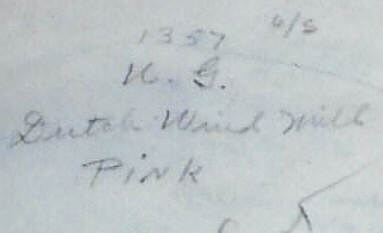 1357 6/5
N. G.
Dutch Wind Mill
Pink